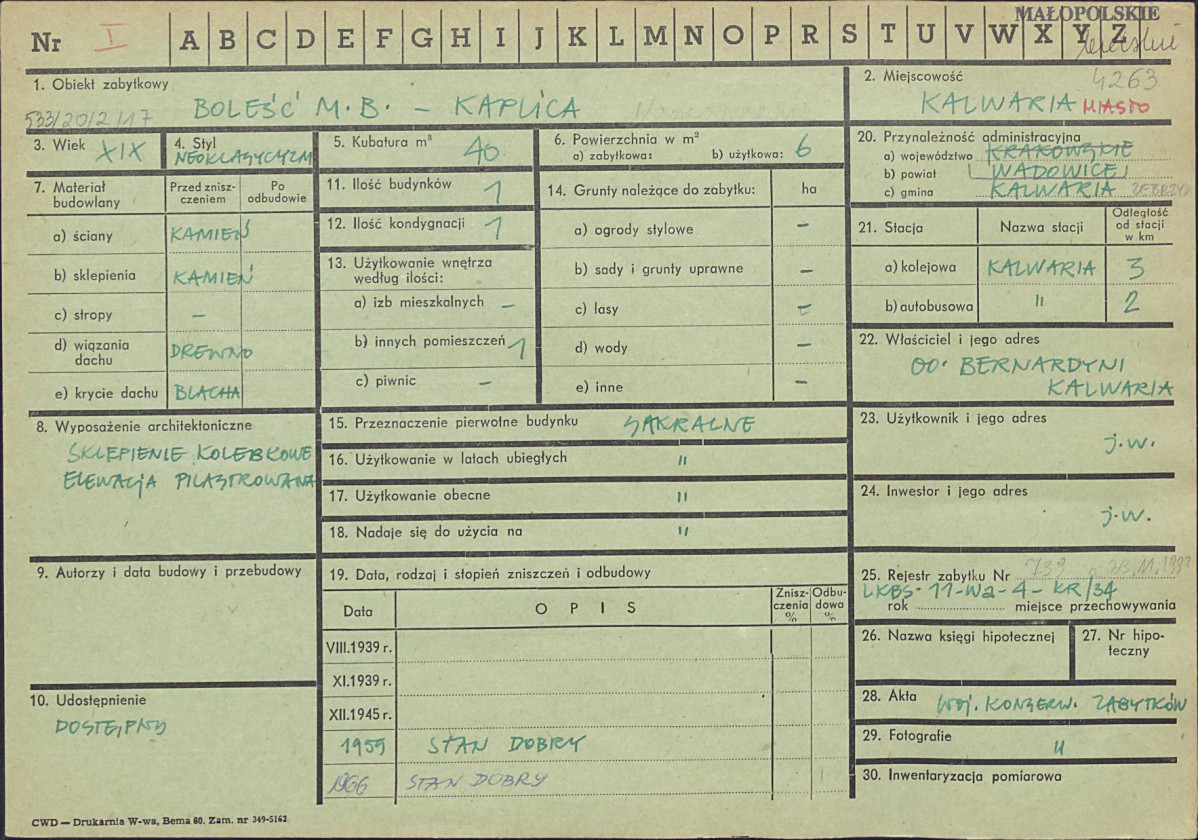 MAŁOPOLSKIE
Nr I A B C D E F G H I J K L M N O P R S T U V W X Y Z
1. Obiekt zabytkowy
BOLEŚĆ M.B. – KAPLICA
2. Miejscowość 4263
KALWARIA MIASTO
3. Wiek XIX
4. Styl
NEOKLASYCYZM
5. Kubatura m³ 40
6. Powierzchnia w m²
a) zabytkowa: b) użytkowa: 6
20. Przynależność administracyjna
a) województwo KRAKOWSKIE
b) powiat WADOWICE
c) gmina KALWARIA
7. Materiał budowlany
Przed zniszczeniem
Po odbudowie
a) ściany KAMIEŃ
b) sklepienia KAMIEŃ
c) stropy –
d) wiązania dachu DREWNO
e) krycie dachu BLACHA
11. Ilość budynków 1
12. Ilość kondygnacji 1
13. Użytkowanie wnętrza
według ilości:
a) izb mieszkalnych –
b) innych pomieszczeń 1
c) piwnic –
14. Grunty należące do zabytku: ha
a) ogrody stylowe –
b) sady i grunty uprawne –
c) lasy –
d) wody –
e) inne –
21. Stacja Nazwa stacji Odległość od stacji w km
a) kolejowa KALWARIA 3
b) autobusowa " 2
22. Właściciel i jego adres
OO. BERNARDYNI
KALWARIA
8. Wyposażenie architektoniczne
SKLEPIENIE KOLEBKOWE
ELEWACJA PILASTROWANA
15. Przeznaczenie pierwotne budynku SAKRALNE
16. Użytkowanie w latach ubiegłych "
17. Użytkowanie obecne "
18. Nadaje się do użycia na "
23. Użytkownik i jego adres
j.w.
24. Inwestor i jego adres
j.w.
9. Autorzy i data budowy i przebudowy
19. Data, rodzaj i stopień zniszczeń i odbudowy
Data OPIS Zniszczenia % Odbudowa %
VIII.1939 r.
XI.1939 r.
XII.1945 r.
1959 STAN DOBRY
1966 STAN DOBRY
25. Rejestr zabytku Nr
LKBS-11-Wa-4-KR/34
rok miejsce przechowywania
26. Nazwa księgi hipotecznej
27. Nr hipoteczny
10. Udostępnienie
DOSTĘPNY
28. Akta WOJ. KONSERW. ZABYTKÓW
29. Fotografie "
30. Inwentaryzacja pomiarowa
CWD — Drukarnia W-wa, Bema 60. Zam. nr 349-5162